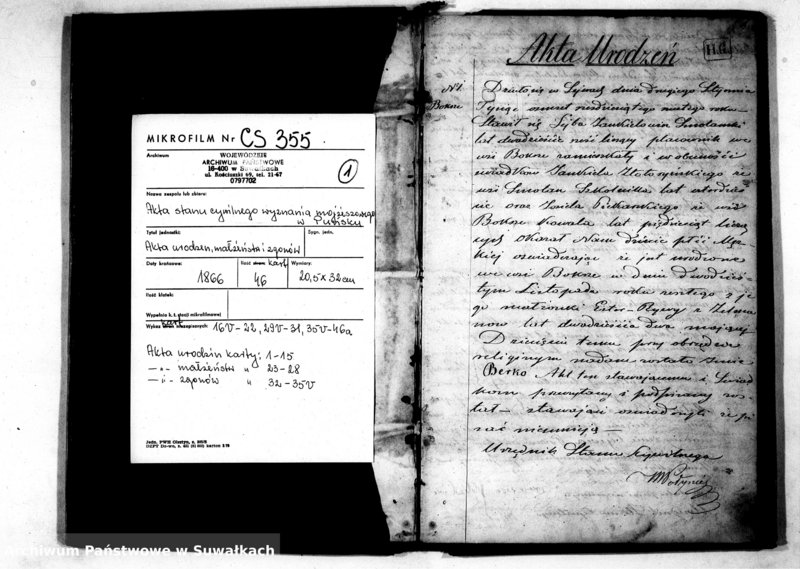 MIKROFILM Nr CS 355
Archiwum
WOJEWÓDZKIE
ARCHIWUM PAŃSTWOWE
16-400 w Suwałkach
ul. Kościuszki 69, tel. 21-67
0797702
1
Nazwa zespołu lub zbioru:
Akta stanu cywilnego wyznania mojżeszowego
w Puńsku
Tytuł jednostki:
Sygn. jedn.
Akta urodzeń, małżeństw i zgonów
Daty krańcowe:
Ilość stron: kart
Wymiary:
1866
46
20,5 x 32 cm
Ilość klatek:
Wypełnia k.t. stacji mikrofilmowej
kart
Wykaz stron niezapisanych: 16v-22, 29v-31, 35v-46a
Akta urodzin karty: 1-15
—"— małżeństw " 23-28
—"— zgonów " 32-35v
Akta Urodzeń
N 1.
Boksze
Działo się w dnia drugiego Stycznia
Tysiąc ośmset sześćdziesiątego szóstego roku
Stawił się
lat dwadzieścia sześć liczący we
wsi Boksze zamieszkały i w obecności
świadków ze
wsi Smolan Szkolnika lat
oraz ze wsi
Boksze Kowala lat pięćdziesiąt liczą
cych okazał Nam dziecię płci Męz
kiej oświadczając że jest urodzone
we wsi Boksze w dniu dwudzies
tym Listopada roku zeszłego z je
go małżonki Ester Rywy z
now lat dwadzieścia dwa mającej
Dziecięciu temu przy obrzędzie
religijnym nadane zostało Imie
Berko. Akt ten stawającemu i Świad
kom przeczytany i podpisany zo
stał — stawający oświadczyli że pi
sać nieumieją —
Urzędnik Stanu Cywilnego
Archiwum Państwowe w Suwałkach